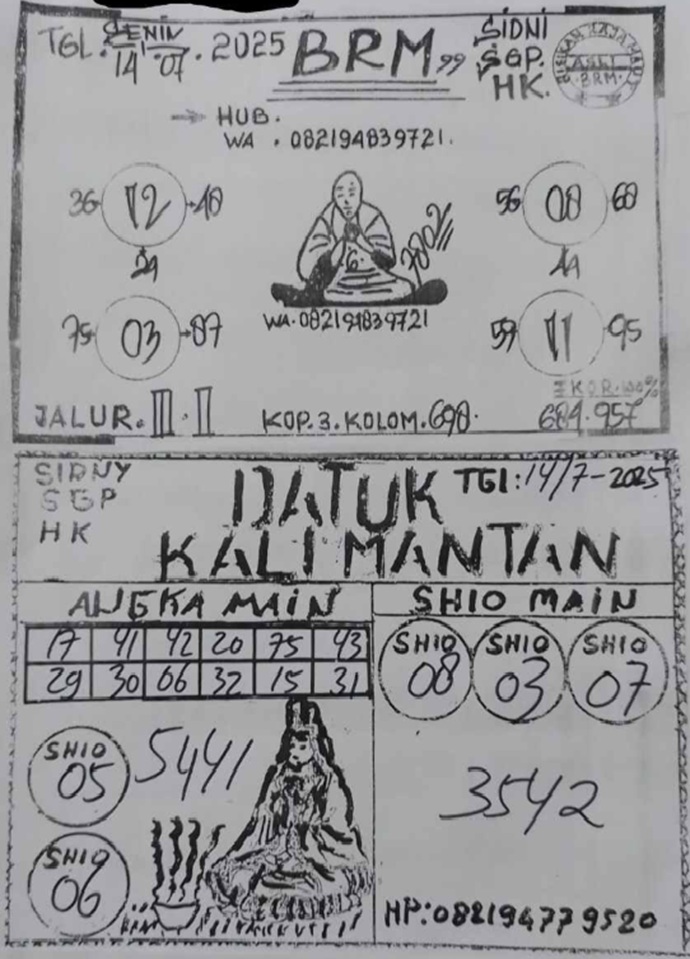 TGL. SENIN 14/07. 2025 BRM 99 SIDNI
SGP.
HK.
ASLI
BRM
HUB.
WA. 082194839721.
36 12 48
24
56 08 68
44
7802
75 03 87
WA. 082194839721
59 11 95
EKOR. 100%
JALUR. III. II KOP. 3. KOLOM. 698. 684.957
SIDNY
SGP
HK
DATUK
KALIMANTAN
TGl: 14/7-2025
ANGKA MAIN
17 41 42 20 75 43
29 30 06 32 15 31
SHIO 05
5441
SHIO 06
SHIO MAIN
SHIO 08 SHIO 03 SHIO 07
3542
HP: 082194779520